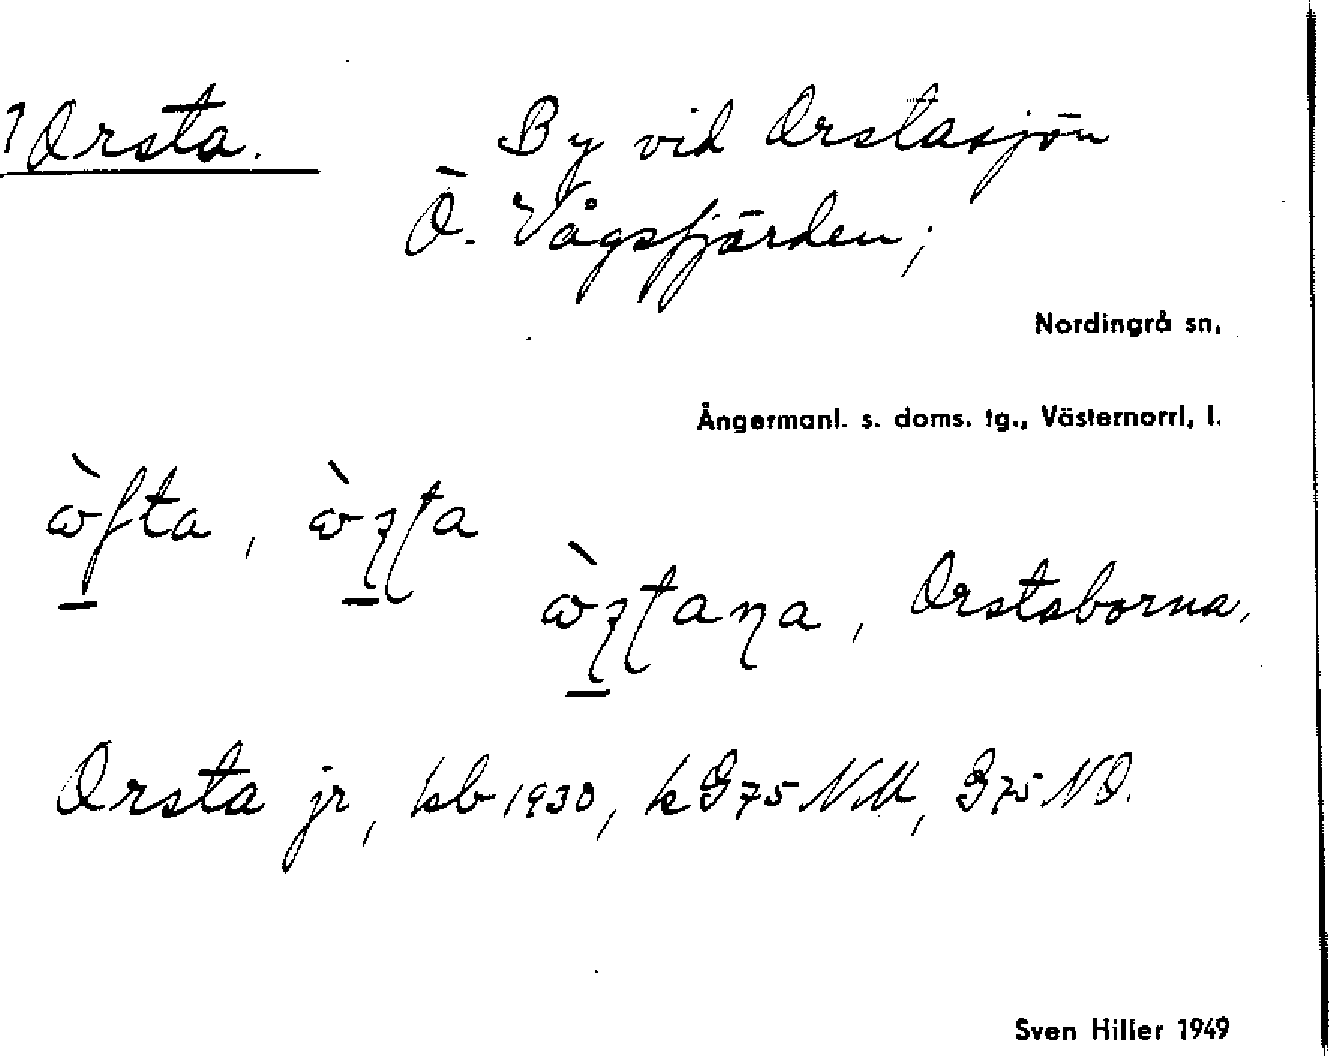 1 Orsta. By vid Orstasjön
Ö. Vågsfjärden;
Nordingrå sn.
Ångermanl. s. doms. tg., Västernorrl, l.
Orstaborna,
Orsta jr, kb 1930, k G75 NM, G75 NO.
Sven Hiller 1949